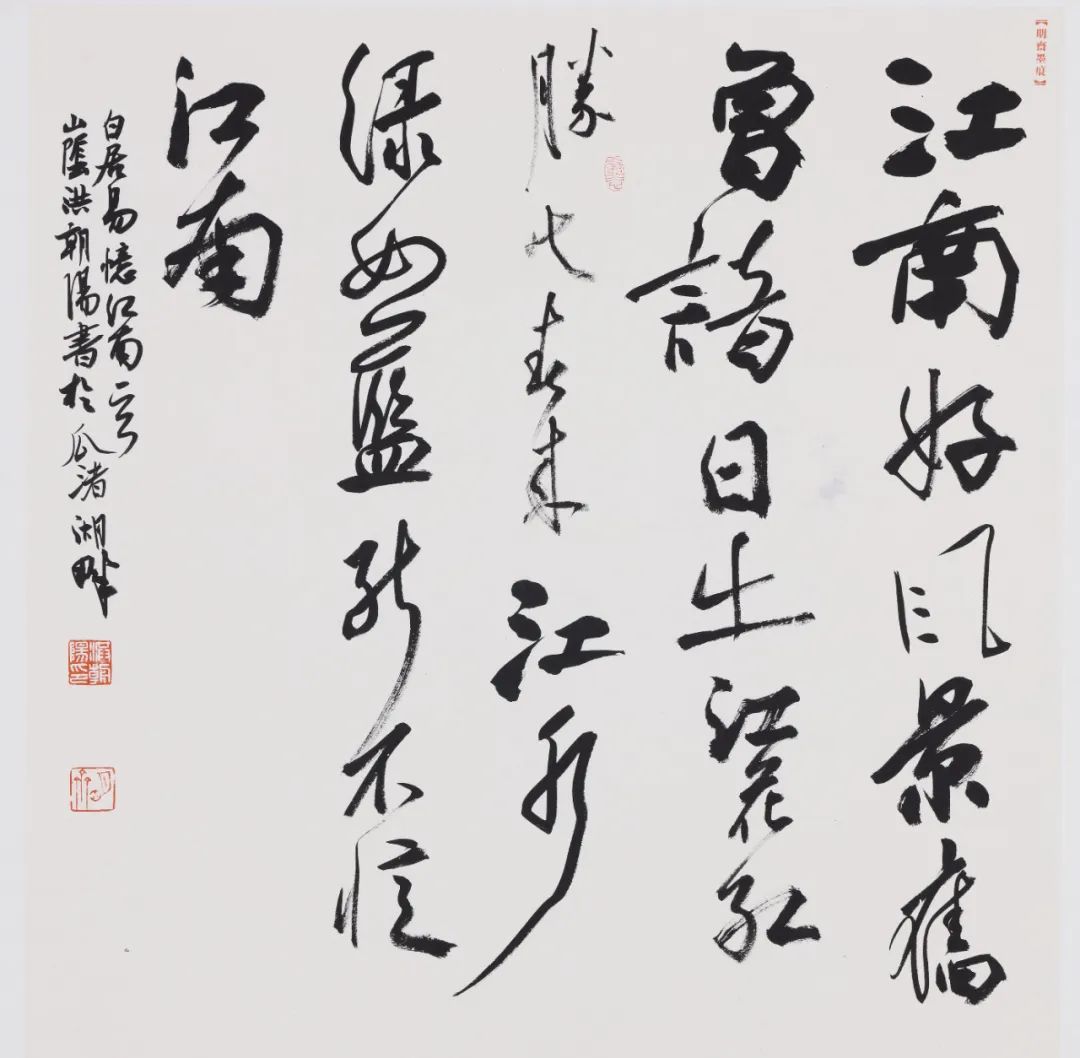 【明齋墨痕】
江南好風景舊
曾諳日出江花紅
勝火春來江水
綠如藍能不憶
江南
白居易憶江南一首
山陰洪朝陽書於瓜渚湖畔
洪朝陽印